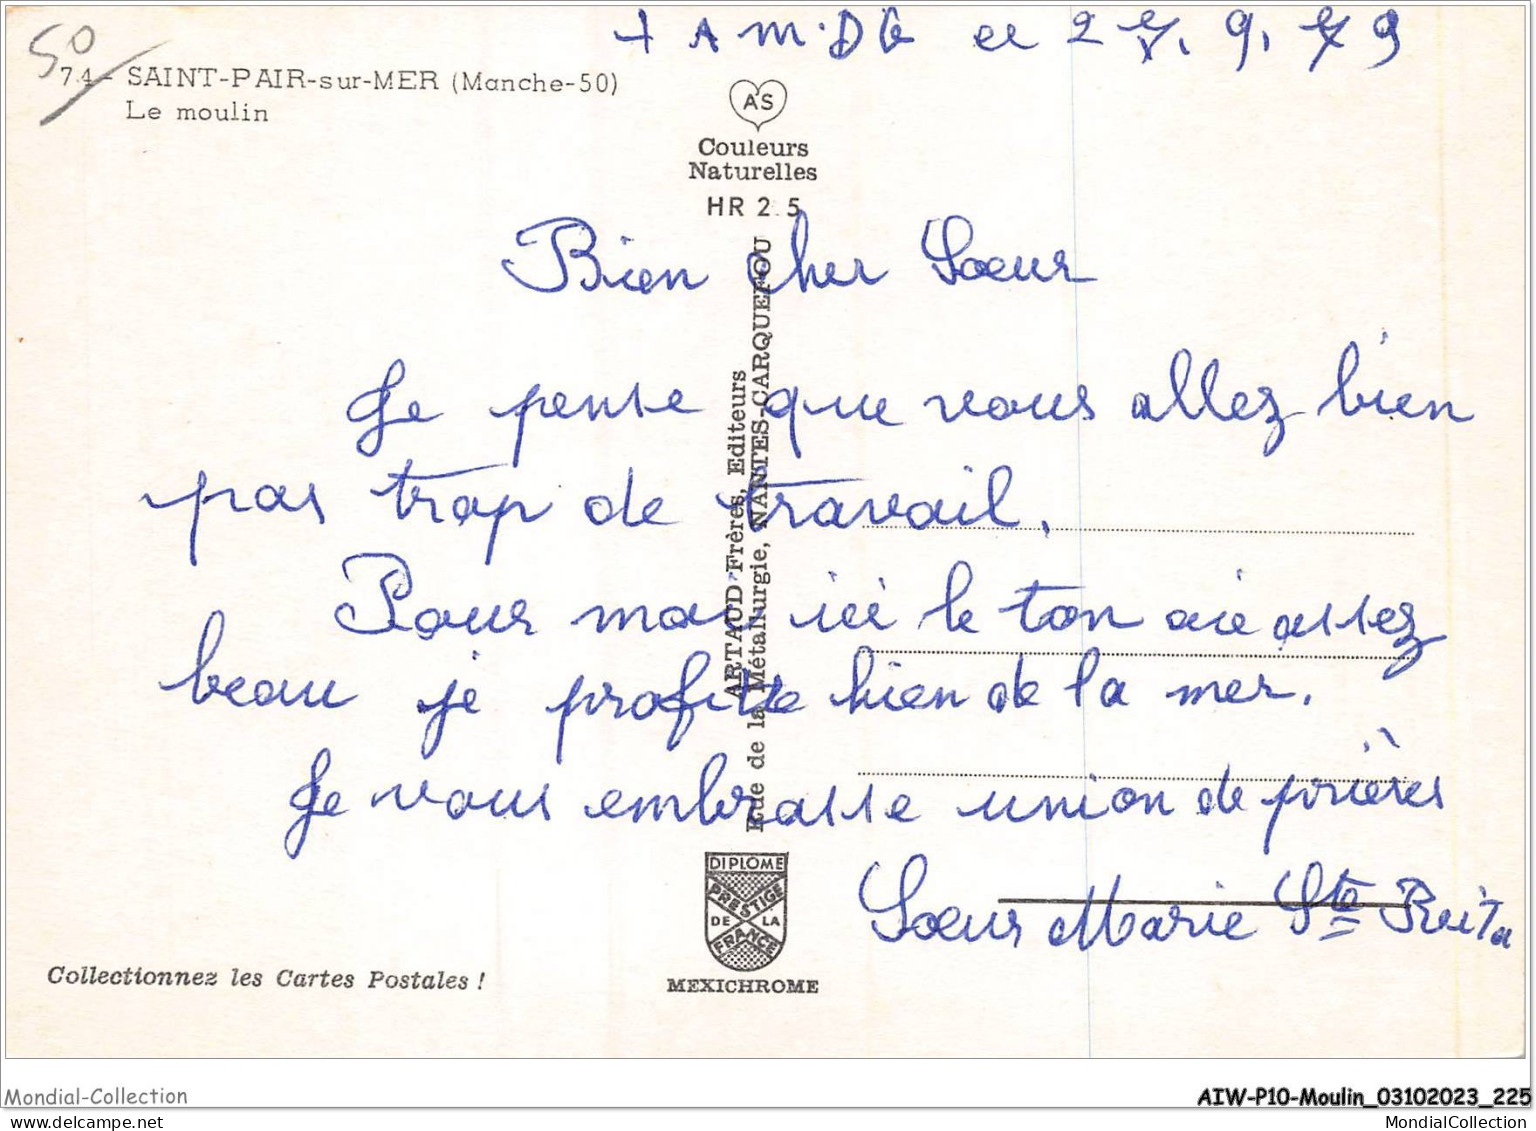 50
+ A M.D G le 27. 9. 79
74 - SAINT-PAIR-sur-MER (Manche-50)
Le moulin
AS
Couleurs
Naturelles
HR 2.5
Bien cher Soeur
Je pense que vous allez bien
pas trop de travail.
Pour moi ici le ton aie assez
beau je profitte bien de la mer.
Je vous embrasse union de prières
Soeur Marie Ste Rita
ARTAUD Frères, Editeurs
Rue de la Métallurgie, NANTES-CARQUEFOU
DIPLOME
PRESTIGE
DE LA
FRANCE
MEXICHROME
Collectionnez les Cartes Postales !
Mondial-Collection
Mondial-Collection.com
AIW-P10-Moulin_03102023_225
MondialCollection